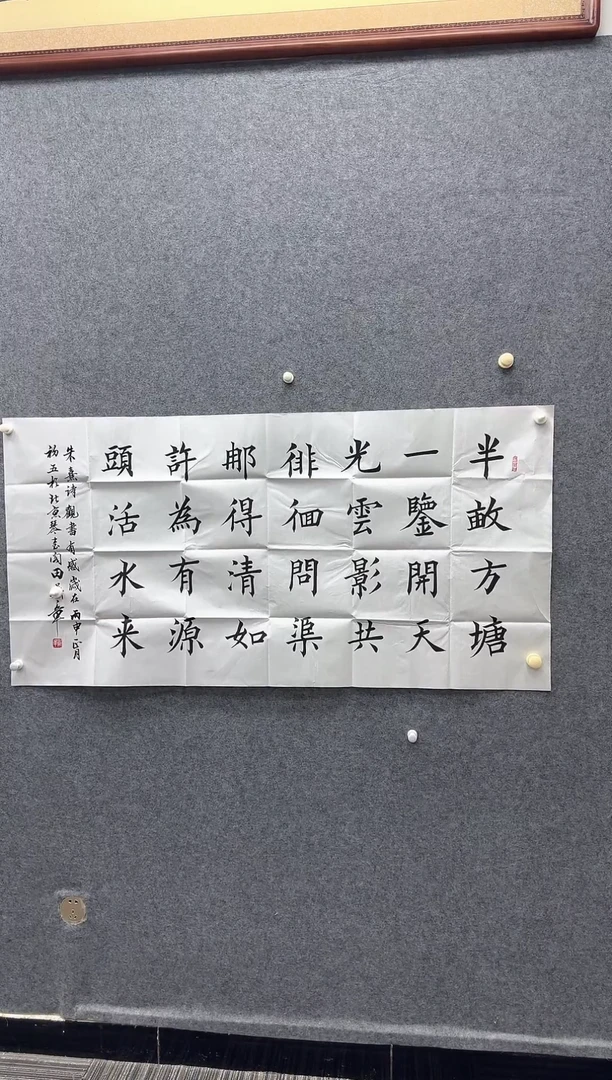 半畝方塘
一鑒開天
光雲影共
徘徊問渠
那得清如
許為有源
頭活水来
朱熹诗觀書有感歲在丙申正月
初五於北京琴書阁田章